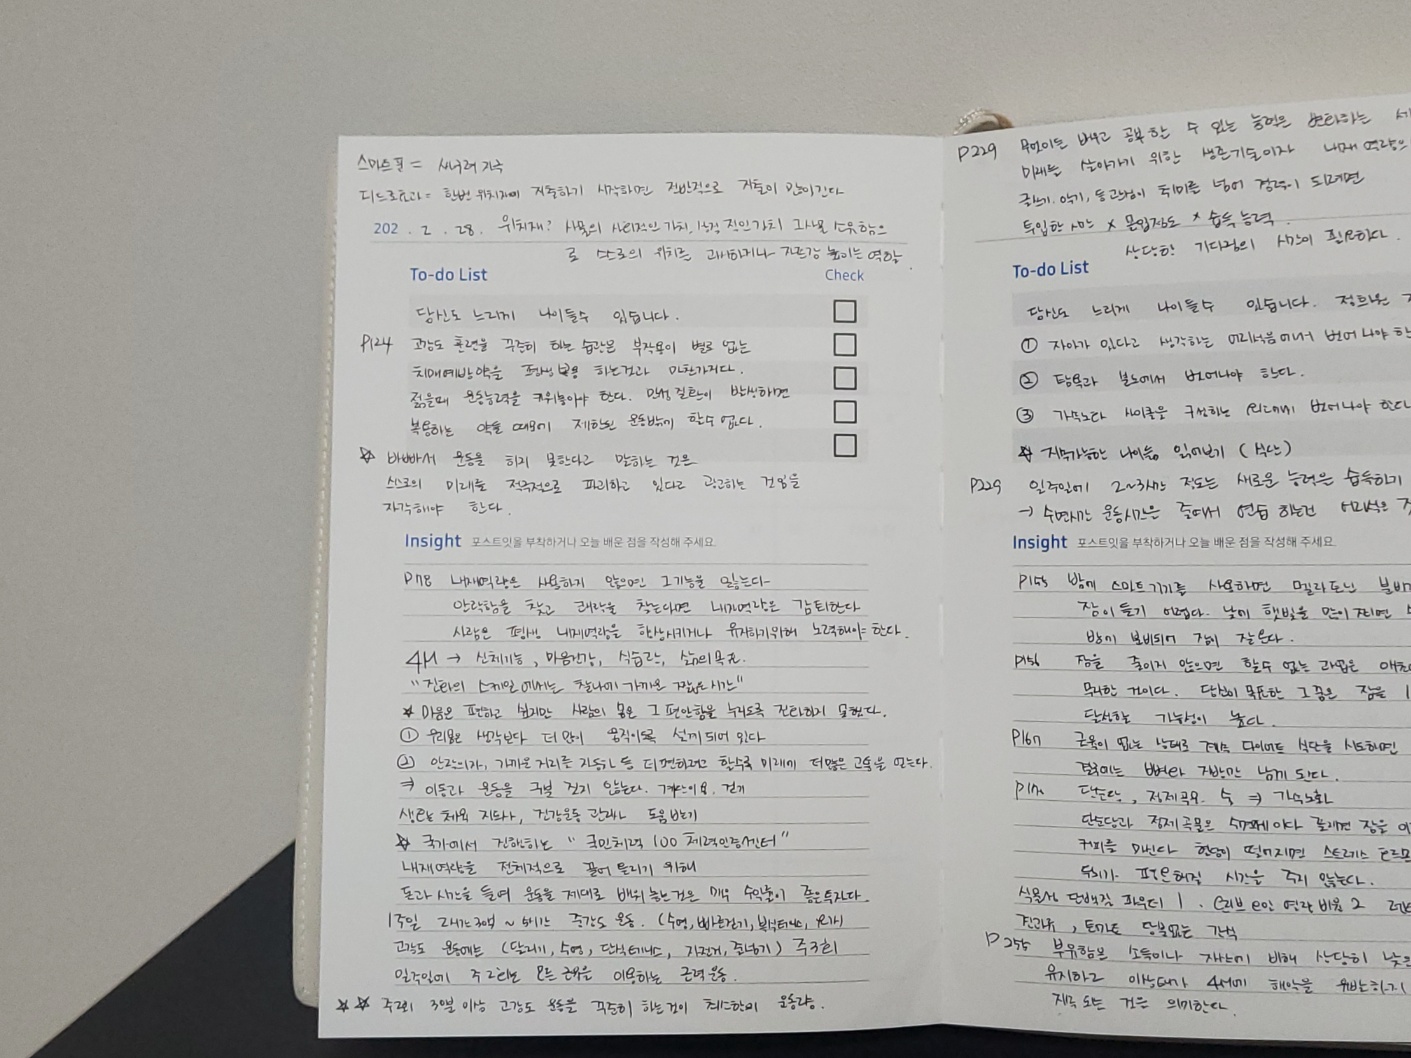 스마트폰 =
디드로효과 = 한번 위치재에 지출하기 시작하면 전반적으로 지출이 많아진다
202 . 2 . 28 . 위치재? 사물의 사회적인 가치, 그 사물 소유함으
로 스스로의 위치를 과시하거나 자존감 높이는 역할.
To-do List
Check
당신도 느리게 나이들수 있습니다.
P124 고강도 훈련을 꾸준히 하는 습관은 부작용이 별로 없는
치매예방약을 평생 복용 하는것과 마찬가지다.
젊을때 운동능력을 키워놓아야 한다. 만성질환이 발생하면
복용하는 약들 때문에 제한된 운동밖에 할수 없다.
☆ 바빠서 운동을 하지 못한다고 말하는 것은
스스로의 미래를 적극적으로 파괴하고 있다고 광고하는 것임을
자각해야 한다.
Insight 포스트잇을 부착하거나 오늘 배운 점을 작성해 주세요.
P178 내재역량은 사용하지 않으면 그 기능을 잃는다
안락함을 찾고 쾌락을 찾는다면 내재역량은 감퇴한다
사람은 평생 내재역량을 향상시키거나 유지하기위해 노력해야 한다.
4M → 신체기능, 마음건강, 삶의목표.
"진화의 스케일에서는 찰나에 가까운 짧은 시간"
★ 마음은 편하고 싶지만 사람의 몸은 그 편안함을 누리도록 진화하지 못했다.
① 우리몸은 생각보다 더 많이 움직이도록 설계 되어 있다
② 안락의자, 가까운 거리를 자동차 등 더 편하려고 할수록 미래에 더 많은 고통을 얻는다.
⇒ 이동과 운동을 구분 짓지 않는다. 계단이용, 걷기
생활체육 지도사, 건강운동 관리사 도움받기
☆ 국가에서 진행하는 "국민체력 100 체력인증센터"
내재역량을 전체적으로 끌어 올리기 위해
돈과 시간을 들여 운동을 제대로 배워 놓는 것은 매우 수익률이 좋은투자다.
1주일 2시간 30분 ~ 5시간 중강도 운동. (수영, 빠르걷기, 복식테니스, 요가)
고강도 운동에는 (달리기, 수영, 단식테니스, 자전거, 줄넘기) 주3회
일주일에 주2회는 모든 근육을 이용하는 근력운동.
☆☆ 주2회 30분 이상 고강도 운동을 꾸준히 하는것이 최소한의 운동량.
P229 무엇이든 배우고 공부할 수 있는 능력은 변화하는
미래를 살아가기 위한 생존기술이자 내재역량
악기, 등 관심이 취미를 넘어 경력이 되려면
투입한 시간 × 몰입정도 × 습득 능력.
상당한 기다림의 시간이 필요하다.
To-do List
당신도 느리게 나이들수 있습니다. 정희원
① 자아가 있다고 생각하는 어리석음에서 벗어나야
② 탐욕과 분노에서 벗어나야 한다.
③ 가속노화 사이클을 구성하는 벗어나야 한다
☆ 지속가능한 나이듦 읽어보기 (식단)
P229 일주일에 2~3시간 정도는 새로운 능력을 습득하기
→ 수면시간 운동시간을 줄여서 연습 하는건 어리석은
Insight 포스트잇을 부착하거나 오늘 배운 점을 작성해 주세요.
P155 밤에 스마트기기를 사용하면 멜라토닌
잠이 들기 어렵다. 낮에 햇빛을 많이 쬐면
밤에 분비되어 잠이 잘온다.
P156 잠을 줄이지 않으면 할수 없는 과업은
무리한 것이다. 당신이 목표한 그것은 잠을
달성할 가능성이 높다.
P167 근육이 없는 상태로 계속 다이어트 식단을 시도하면
결국에는 뼈와 지방만 남게 된다.
단순당, 정제곡물. ⇒ 가속노화
단순당과 정제곡물은
커피를 마신다 혈당이 떨어지면 스트레스
시간을 주지 않는다.
식물성 단백질 파우더 1.
토마토 당분없는 간식
P255 부유함은 소득이나 자산에 비해 상당히
유지하고
것을 의미한다.